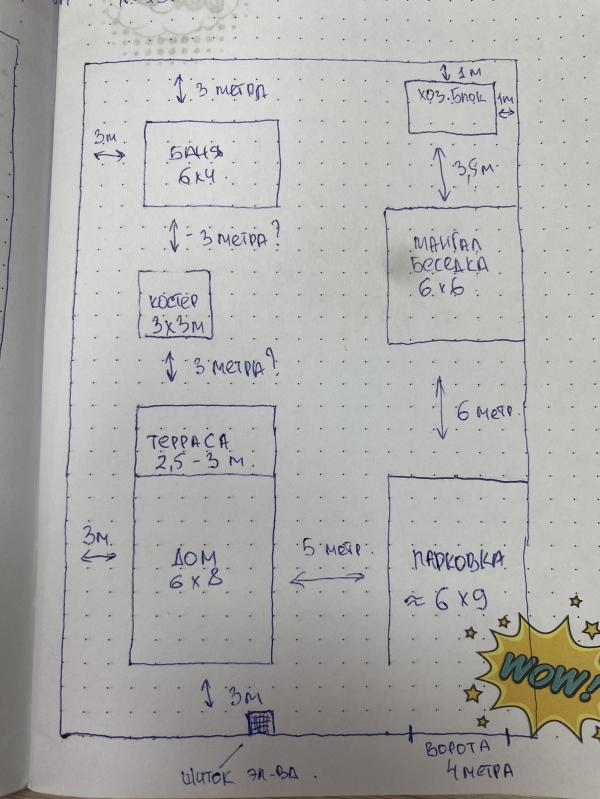 3 МЕТРА
1 М
ХОЗ.БЛОК
1М
3М
БАНЯ
6х4
3,5 М
3 МЕТРА?
МАНГАЛ
БЕСЕДКА
6 х 6
КОСТЁР
3х3М
3 МЕТРА?
6 МЕТР.
ТЕРРАСА
2,5 - 3 М.
3М.
ДОМ
6 х 8
5 МЕТР.
ПАРКОВКА
≈ 6 х 9
3М
WOW!
ЩИТОК ЭЛ-ВА.
ВОРОТА
4 МЕТРА